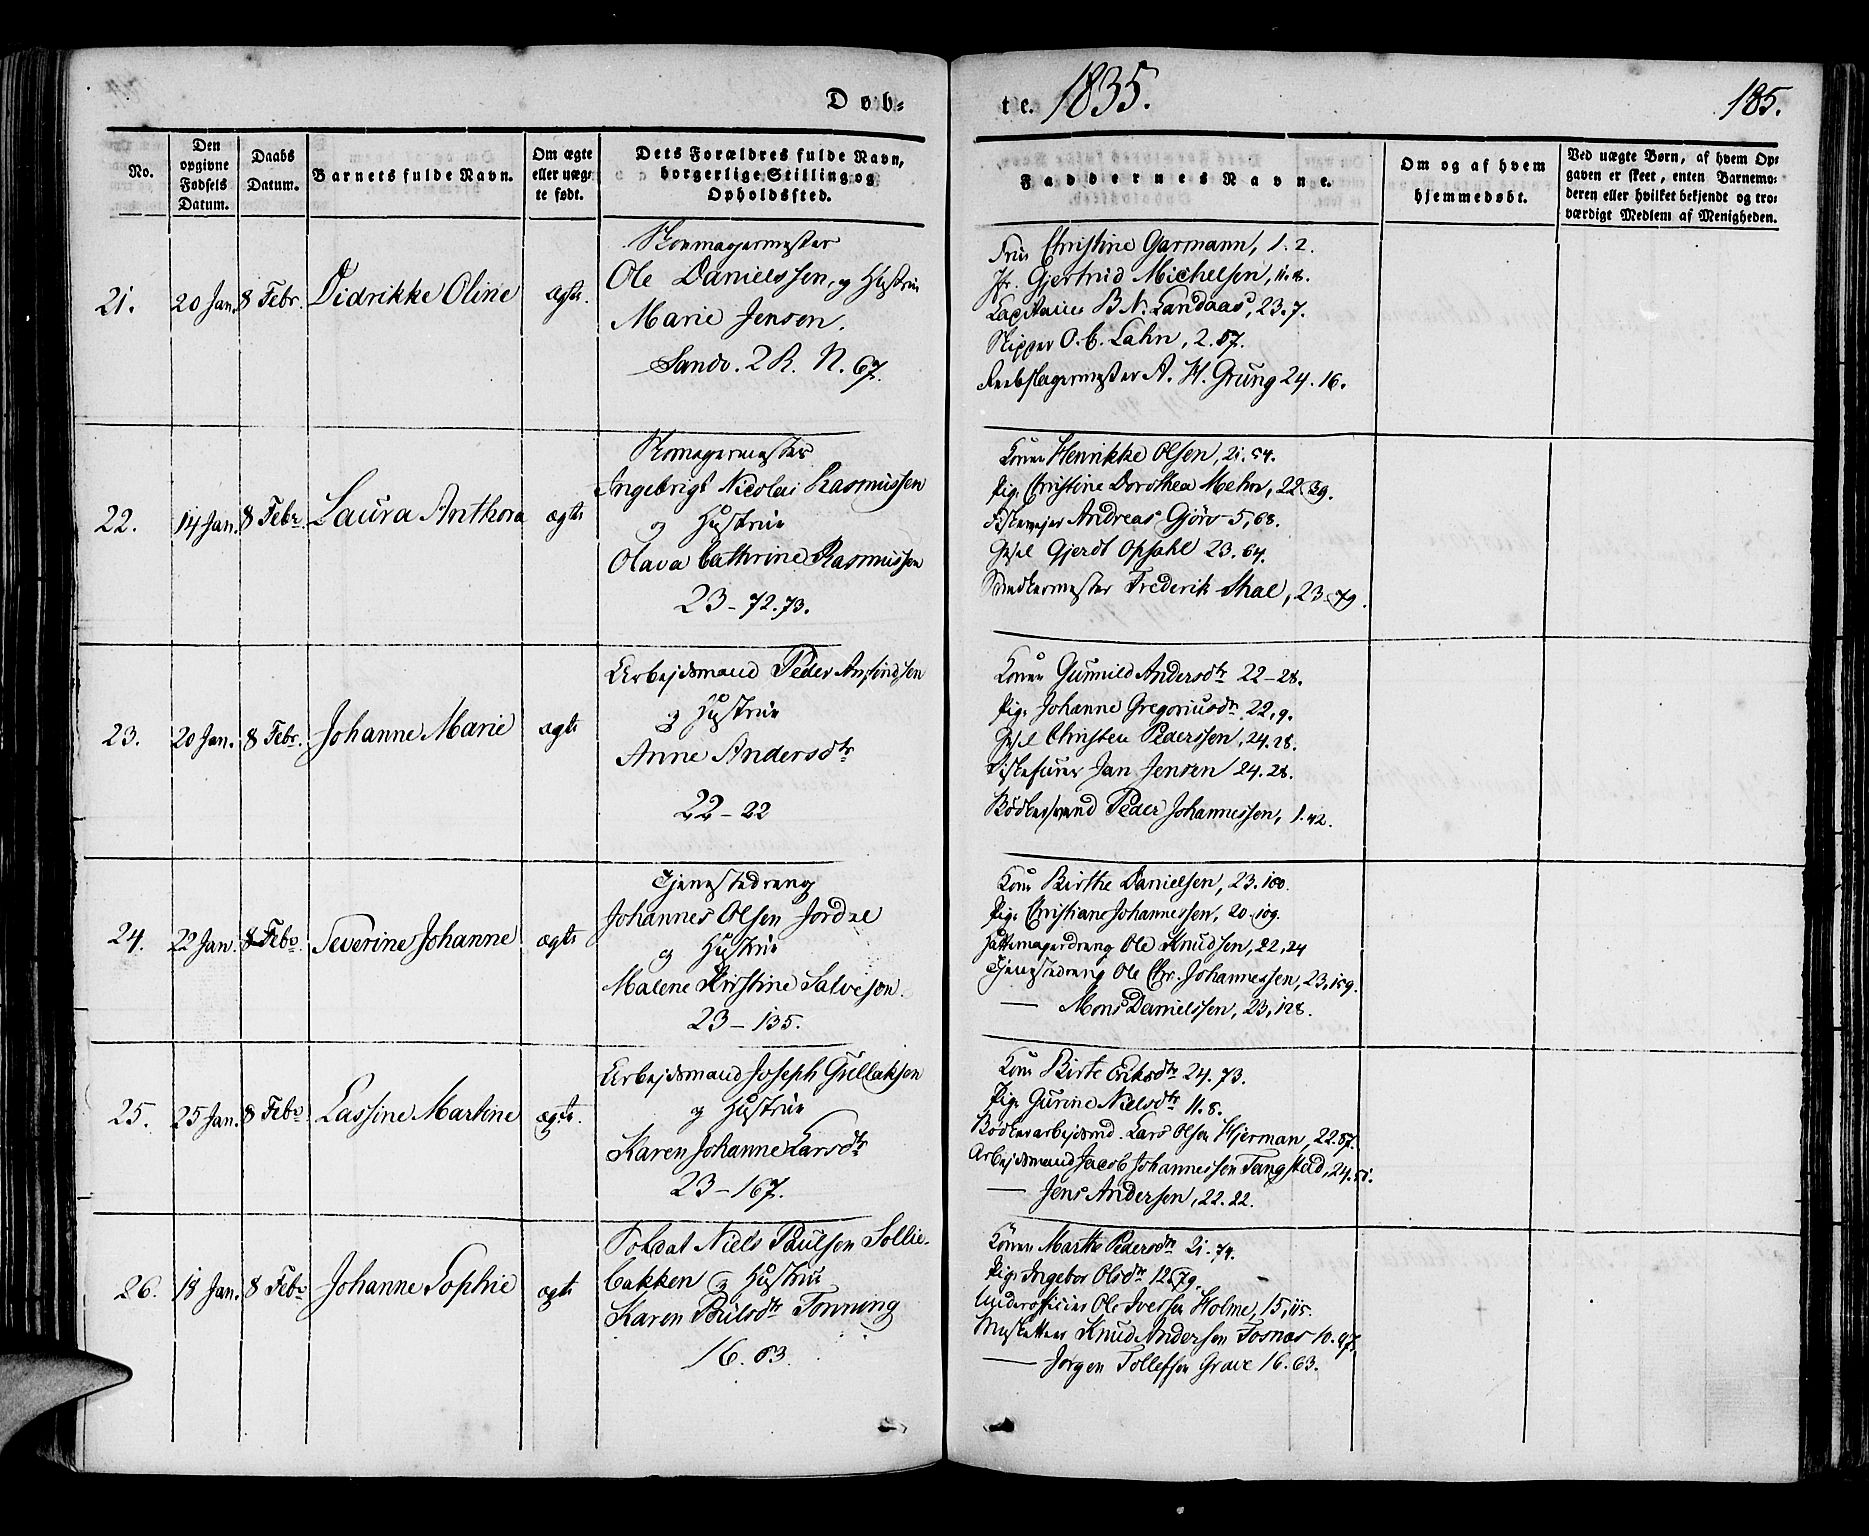 Døb-
te. 1835.
185.
No.
Den opgivne Fødsels Datum.
Daabs Datum.
Barnets fulde Navn.
Om ægte eller uægte født.
Dets Forældres fulde Navn, borgerlige Stilling og Opholdssted.
Faddernes Navne.
Om og af hvem hjemmedøbt.
Ved uægte Børn, af hvem Opgaven er skeet, enten Barnemoderen eller hvilket bekjendt og troværdigt Medlem af Menigheden.
21. 20 Jan. 8 Febr. Didrikke Oline ægte.
Skomagermester
Ole Danielssen, og Hustrue
Marie Jensen.
Sandv. 2 R. N. 67.
Frue Christine Garmann, 1. 2.
Jfr. Gjertrud Michelsen, 11. 8.
Capitaine B N. Landaas, 23. 7.
Skipper O. C. Lahn, 2. 57.
Reebslagermester A. H. Grung 24. 16.
22. 14 Jan. 8 Febr. Laura Anthora ægte
Skomagermester
Ingebrigt Nicolai Rasmussen
og Hustrue
Olava Cathrine Rasmussen
23 - 72. 73.
Konen Henrikke Olsen, 21. 54.
Pige Christine Dorothea Mehn, 22. 39.
Andreas Gjörv 5, 68.
Gjerdt Opsahl 23. 64.
Snedkermester Frederik Shal, 23. 79.
23. 20 Jan. 8 Febr. Johanne Marie ægte
Arbejdsmand Peder Amfindsen
og Hustrue
Anne Andersdtr
22 - 22
Konen Gunnild Andersdtr 22 - 28.
Pige Johanne Gregoriusdtr 22, 9.
Christen Pederssen, 24. 28.
Jan Jensen 24. 28.
Bödkersvend Peder Johannessen, 1. 42.
24. 22 Jan. 8 Febr. Severine Johanne ægte
Tjenestedreng
Johannes Olsen Jordal
og Hustrue
Malene Kirstine Salvesen.
23 - 135.
Kone Birthe Danielsen, 23. 100.
Pige Christiane Johannessen, 20. 109.
Hattemagerdreng Ole Knudsen, 22, 24
Tjenestedreng Ole Chr. Johannessen, 23, 159.
— Mons Danielssen, 23, 128.
25. 25 Jan. 8 Febr. Lassine Martine ægte.
Arbejdsmand Joseph Gullaksen
og Hustrue
Karen Johanne Larsdtr
23 - 167.
Kone Birte Eriksdtr 24. 73.
Pige Gurine Nielsdtr 11. 8.
Bödkerarbejdsmd. Lars Olsen Hjerman, 22. 57.
Arbejdsmand Jacob Johannessen Tangstad, 24. 51.
— Jens Andersen, 22. 22.
26. 18 Jan. 8 Febr. Johanne Sophie ægte
Soldat Niels Paulsen Sollie-
bakken og Hustrue
Karen Poulsdtr Tonning
16. 63.
Konen Marthe Pedersdtr 21. 74.
Pige Ingebor Olsdtr 12. 79.
Underofficier Ole Iversen Holme, 15, 115.
Musketteer Knud Andersen Fosnæs 10. 97.
— Jørgen Tollefsen Grave 16. 63.